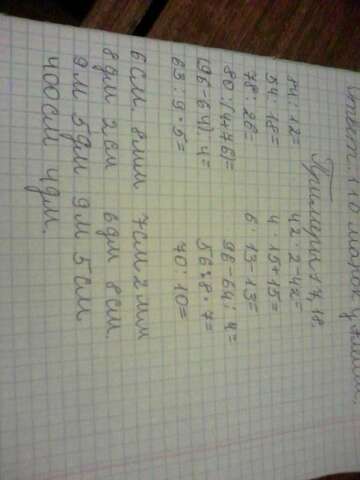 110 марок у
Примеры 17, 18.
84 : 12= 42 · 2-42=
54 : 18= 4 · 15+15=
78 : 26= 6 · 13-13=
80 : (4+76)= 96-64 : 4=
(96-64) : 4= 56 : 8 · 7=
63 : 9 · 5= 70 : 10=
6см 8мм 7см 2мм
8дм 2см 6дм 8см
9м 5дм 9м 5см
400см 4дм.